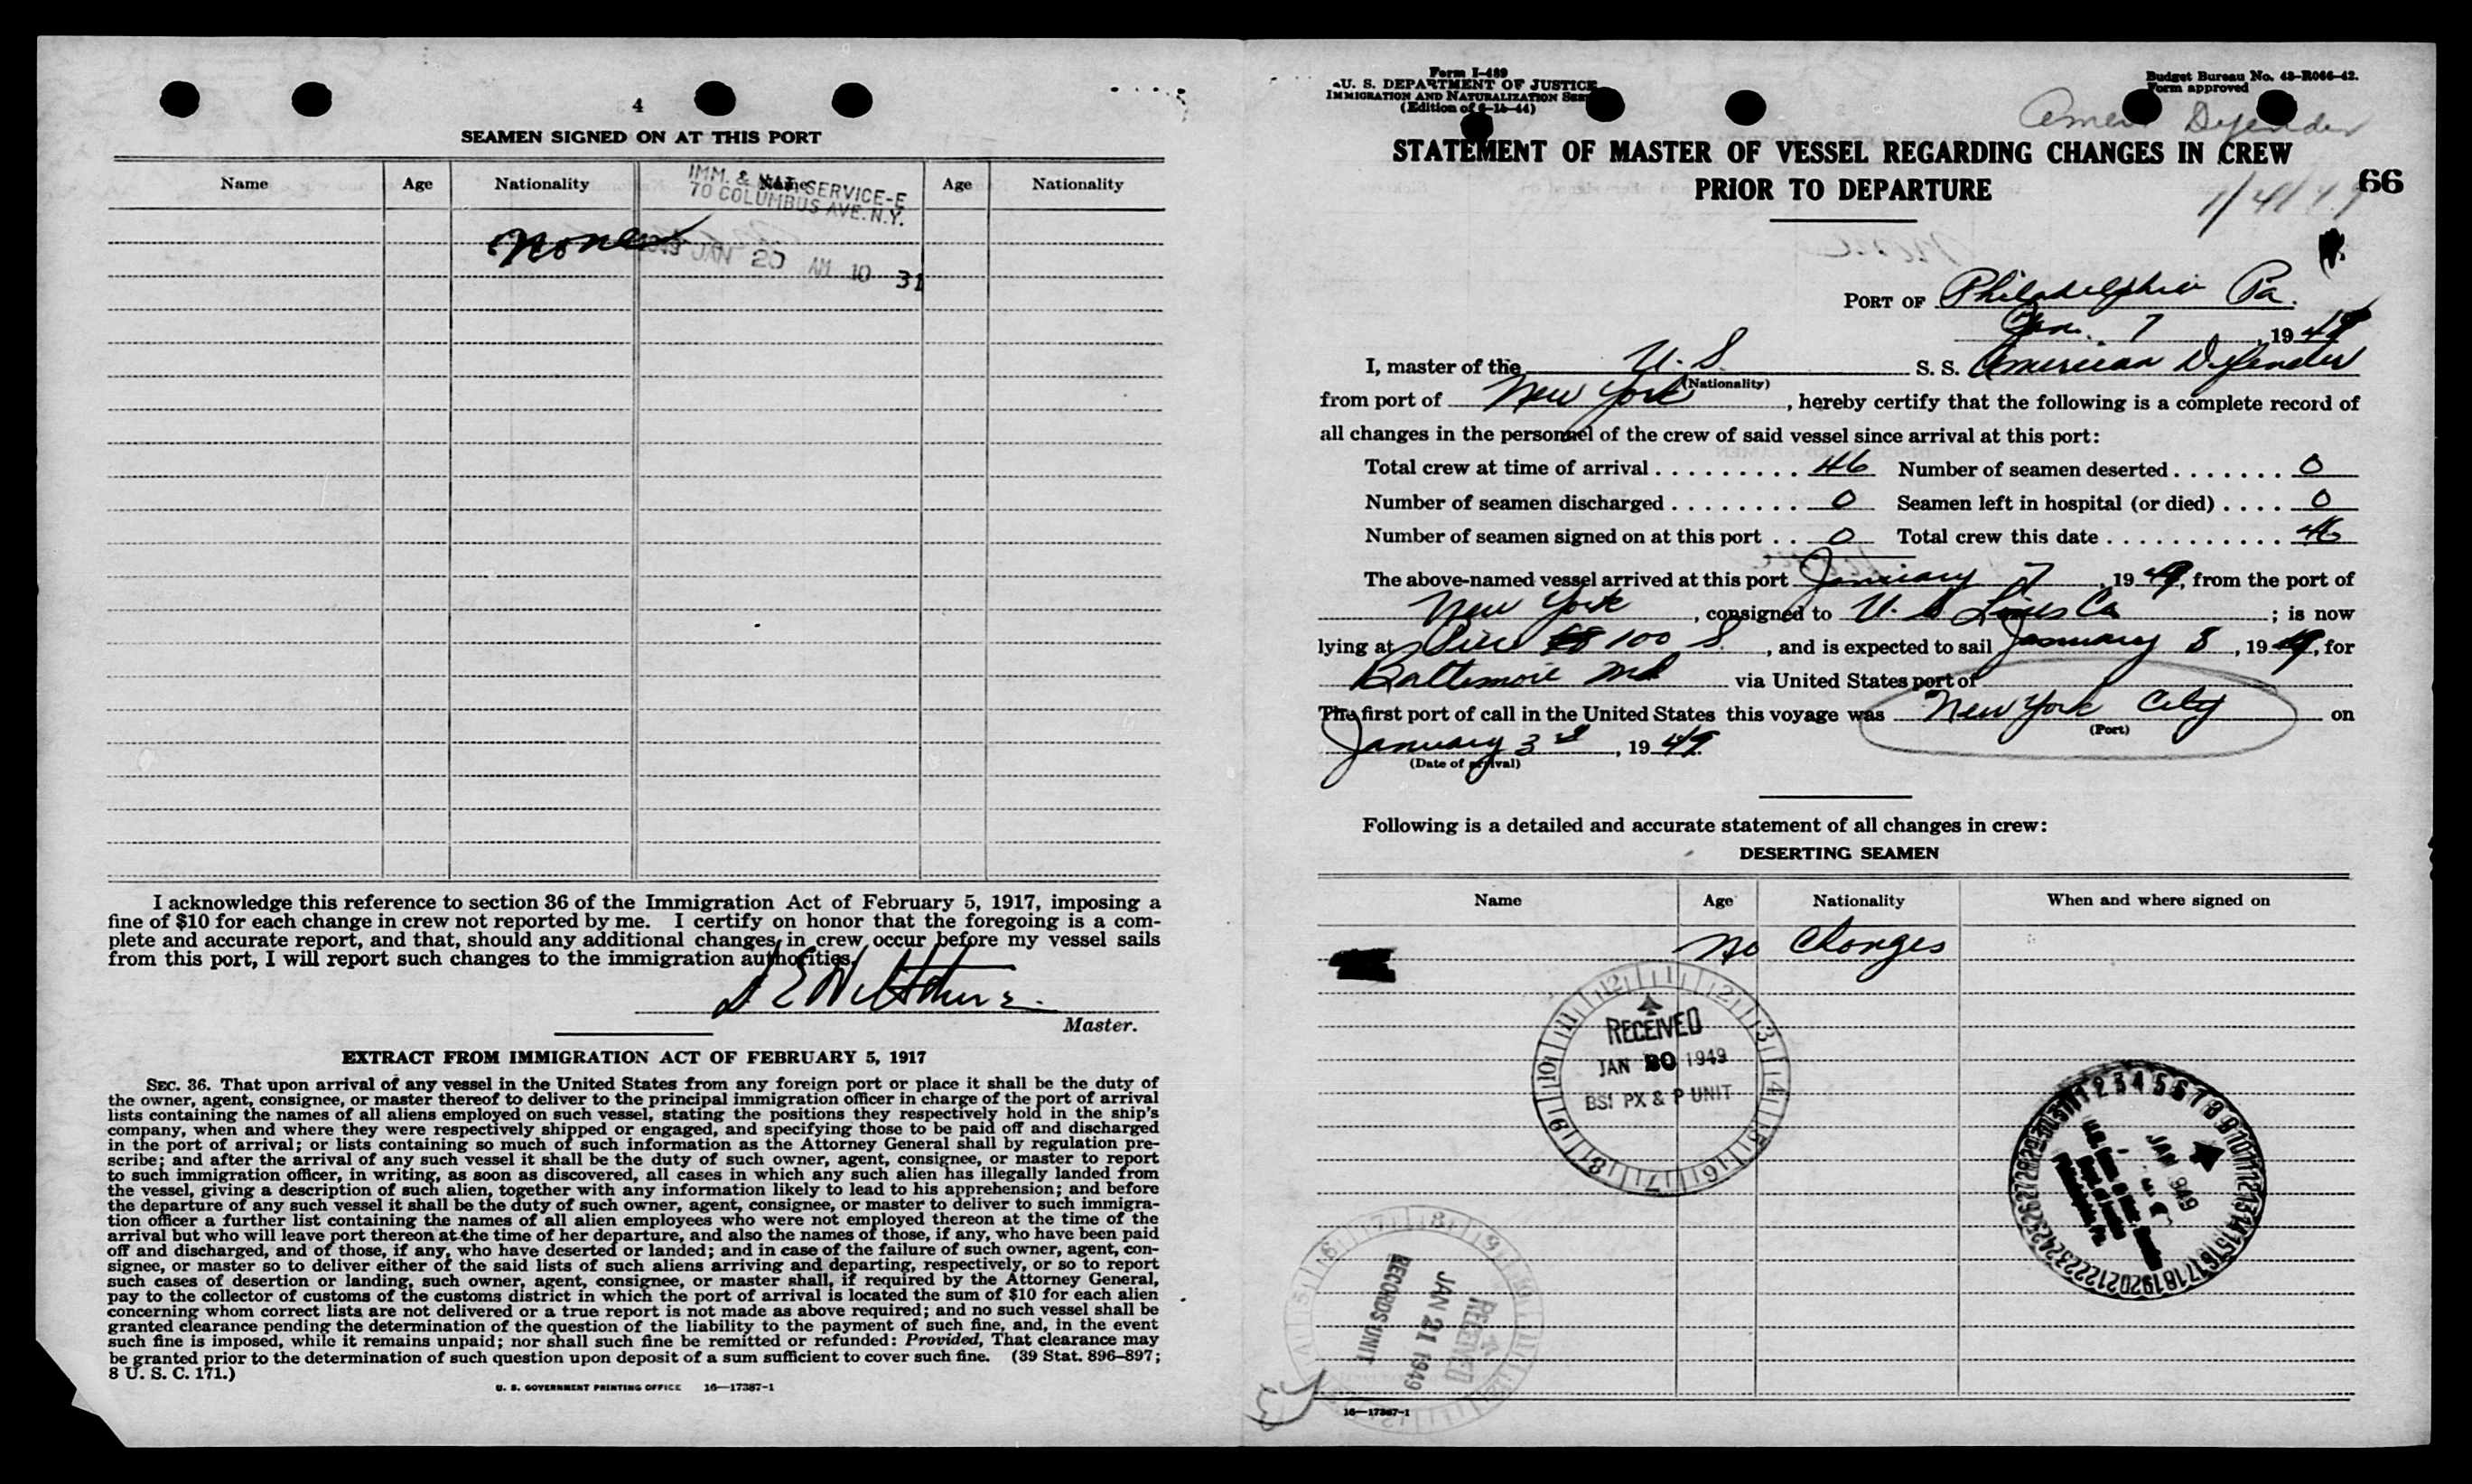 4
SEAMEN SIGNED ON AT THIS PORT
Name Age Nationality Name Age Nationality
IMM. & NAT. SERVICE-E
70 COLUMBUS AVE. N.Y.
None
JAN 20 AM 10 31
I acknowledge this reference to section 36 of the Immigration Act of February 5, 1917, imposing a
fine of $10 for each change in crew not reported by me. I certify on honor that the foregoing is a com-
plete and accurate report, and that, should any additional changes in crew occur before my vessel sails
from this port, I will report such changes to the immigration authorities.
Master.
EXTRACT FROM IMMIGRATION ACT OF FEBRUARY 5, 1917
SEC. 36. That upon arrival of any vessel in the United States from any foreign port or place it shall be the duty of
the owner, agent, consignee, or master thereof to deliver to the principal immigration officer in charge of the port of arrival
lists containing the names of all aliens employed on such vessel, stating the positions they respectively hold in the ship's
company, when and where they were respectively shipped or engaged, and specifying those to be paid off and discharged
in the port of arrival; or lists containing so much of such information as the Attorney General shall by regulation pre-
scribe; and after the arrival of any such vessel it shall be the duty of such owner, agent, consignee, or master to report
to such immigration officer, in writing, as soon as discovered, all cases in which any such alien has illegally landed from
the vessel, giving a description of such alien, together with any information likely to lead to his apprehension; and before
the departure of any such vessel it shall be the duty of such owner, agent, consignee, or master to deliver to such immigra-
tion officer a further list containing the names of all alien employees who were not employed thereon at the time of the
arrival but who will leave port thereon at the time of her departure, and also the names of those, if any, who have been paid
off and discharged, and of those, if any, who have deserted or landed; and in case of the failure of such owner, agent, con-
signee, or master so to deliver either of the said lists of such aliens arriving and departing, respectively, or so to report
such cases of desertion or landing, such owner, agent, consignee, or master shall, if required by the Attorney General,
pay to the collector of customs of the customs district in which the port of arrival is located the sum of $10 for each alien
concerning whom correct lists are not delivered or a true report is not made as above required; and no such vessel shall be
granted clearance pending the determination of the question of the liability to the payment of such fine, and, in the event
such fine is imposed, while it remains unpaid; nor shall such fine be remitted or refunded: Provided, That clearance may
be granted prior to the determination of such question upon deposit of a sum sufficient to cover such fine. (39 Stat. 896–897;
8 U. S. C. 171.)
U. S. GOVERNMENT PRINTING OFFICE 16—17387-1
Form I-489
U. S. DEPARTMENT OF JUSTICE
IMMIGRATION AND NATURALIZATION
(Edition of 6-15-44)
Budget Bureau No. 43-R066-42.
Form approved
Defender
STATEMENT OF MASTER OF VESSEL REGARDING CHANGES IN CREW
PRIOR TO DEPARTURE
66
PORT OF Philadelphia Pa.
Jan. 7, 1949
I, master of the U. S. S. S. American Defender
(Nationality)
from port of New York, hereby certify that the following is a complete record of
all changes in the personnel of the crew of said vessel since arrival at this port:
Total crew at time of arrival 46 Number of seamen deserted 0
Number of seamen discharged 0 Seamen left in hospital (or died) 0
Number of seamen signed on at this port 0 Total crew this date 46
The above-named vessel arrived at this port January 7, 1949, from the port of
New York, consigned to U. S Lines Co; is now
lying at Pier 100 S., and is expected to sail January 8, 1949, for
Baltimore Md via United States port of
The first port of call in the United States this voyage was New York City on
(Port)
January 3rd, 1949.
(Date of arrival)
Following is a detailed and accurate statement of all changes in crew:
DESERTING SEAMEN
Name Age Nationality When and where signed on
No Changes
RECEIVED
JAN 20 1949
BSI PX & P UNIT
JAN 1949
RECEIVED
JAN 21 1949
RECORDS UNIT
16—17387-1